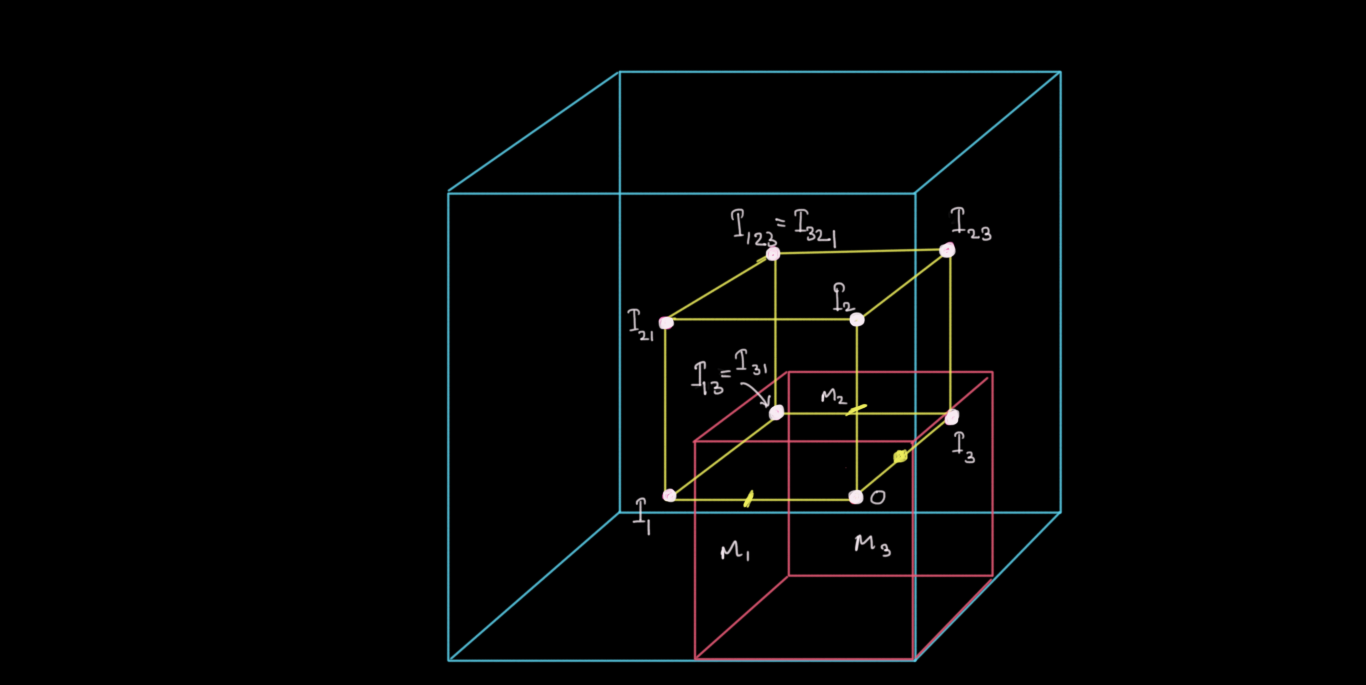 I₁₂₃ = I₃₂₁
I₂₃
I₂
I₂₁
I₁₃ = I₃₁
M₂
I₃
O
I₁
M₁
M₃